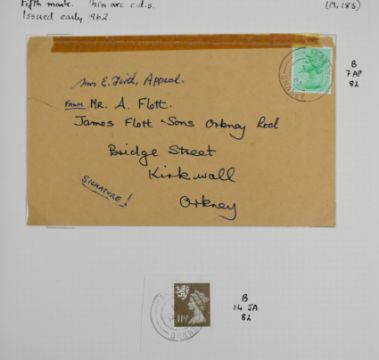 Fifth mark. Thin arc c.d.s. (M.183)
Issued early 1962.
B
7 AP
82
Mrs E. Firth, Appeal.
FROM Mr. A. Flott.
James Flott & Sons Orkney Ltd
Bridge Street
Kirkwall
Orkney
SIGNATURE!
B
14 JA
82
11½